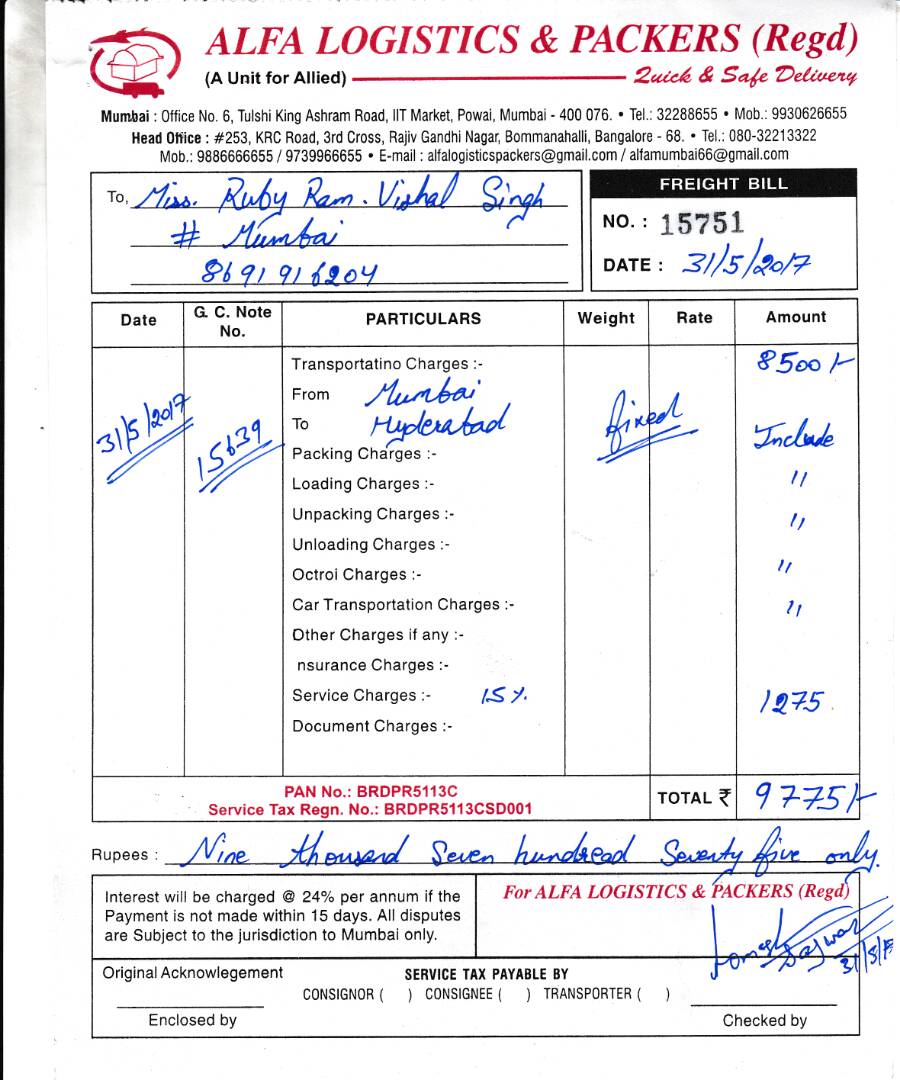 ALFA LOGISTICS & PACKERS (Regd)
(A Unit for Allied)
Quick & Safe Delivery
Mumbai : Office No. 6, Tulshi King Ashram Road, IIT Market, Powai, Mumbai - 400 076. • Tel.: 32288655 • Mob.: 9930626655
Head Office : #253, KRC Road, 3rd Cross, Rajiv Gandhi Nagar, Bommanahalli, Bangalore - 68. • Tel.: 080-32213322
Mob.: 9886666655 / 9739966655 • E-mail : alfalogisticspackers@gmail.com / alfamumbai66@gmail.com
To, Miss. Ruby Ram. Vishal Singh
# Mumbai
8691916204
FREIGHT BILL
NO. : 15751
DATE : 31/5/2017
Date G. C. Note No. PARTICULARS Weight Rate Amount
Transportatino Charges :- 8500/-
From Mumbai
31/5/2017 15639 To Hyderabad fixed Include
Packing Charges :-
Loading Charges :- "
Unpacking Charges :- "
Unloading Charges :-
Octroi Charges :- "
Car Transportation Charges :- "
Other Charges if any :-
nsurance Charges :-
Service Charges :- 15%. 1275
Document Charges :-
PAN No.: BRDPR5113C
Service Tax Regn. No.: BRDPR5113CSD001
TOTAL ₹ 9775/-
Rupees : Nine thousand Seven hundread Seventy five only.
Interest will be charged @ 24% per annum if the
Payment is not made within 15 days. All disputes
are Subject to the jurisdiction to Mumbai only.
For ALFA LOGISTICS & PACKERS (Regd)
Original Acknowlegement
SERVICE TAX PAYABLE BY
CONSIGNOR ( ) CONSIGNEE ( ) TRANSPORTER ( )
Enclosed by
Checked by